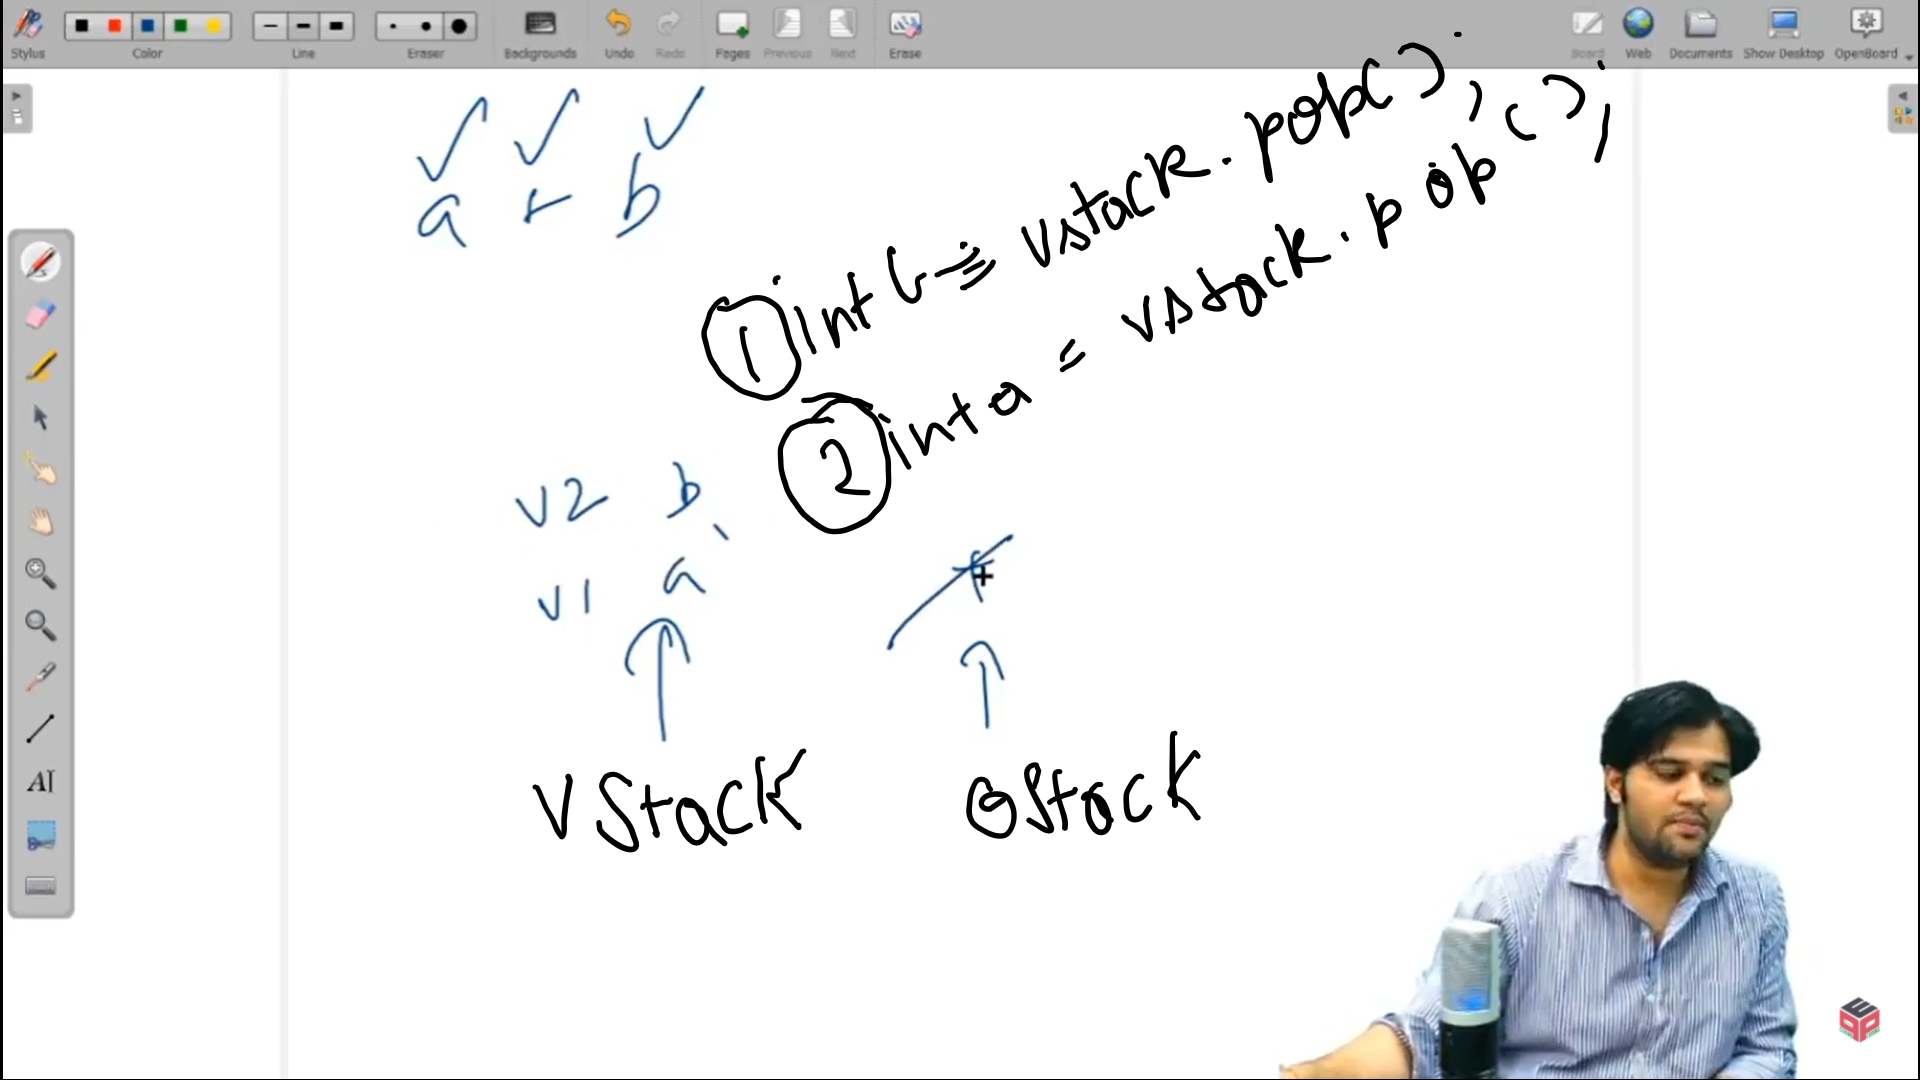 Stylus Color Line Eraser Backgrounds Undo Redo Pages Previous Next Erase Board Web Documents Show Desktop OpenBoard
a + b
① int b = vstack.pop();
② int a = vstack.pop();
v2 b
v1 a
+
vstack ostack
AI